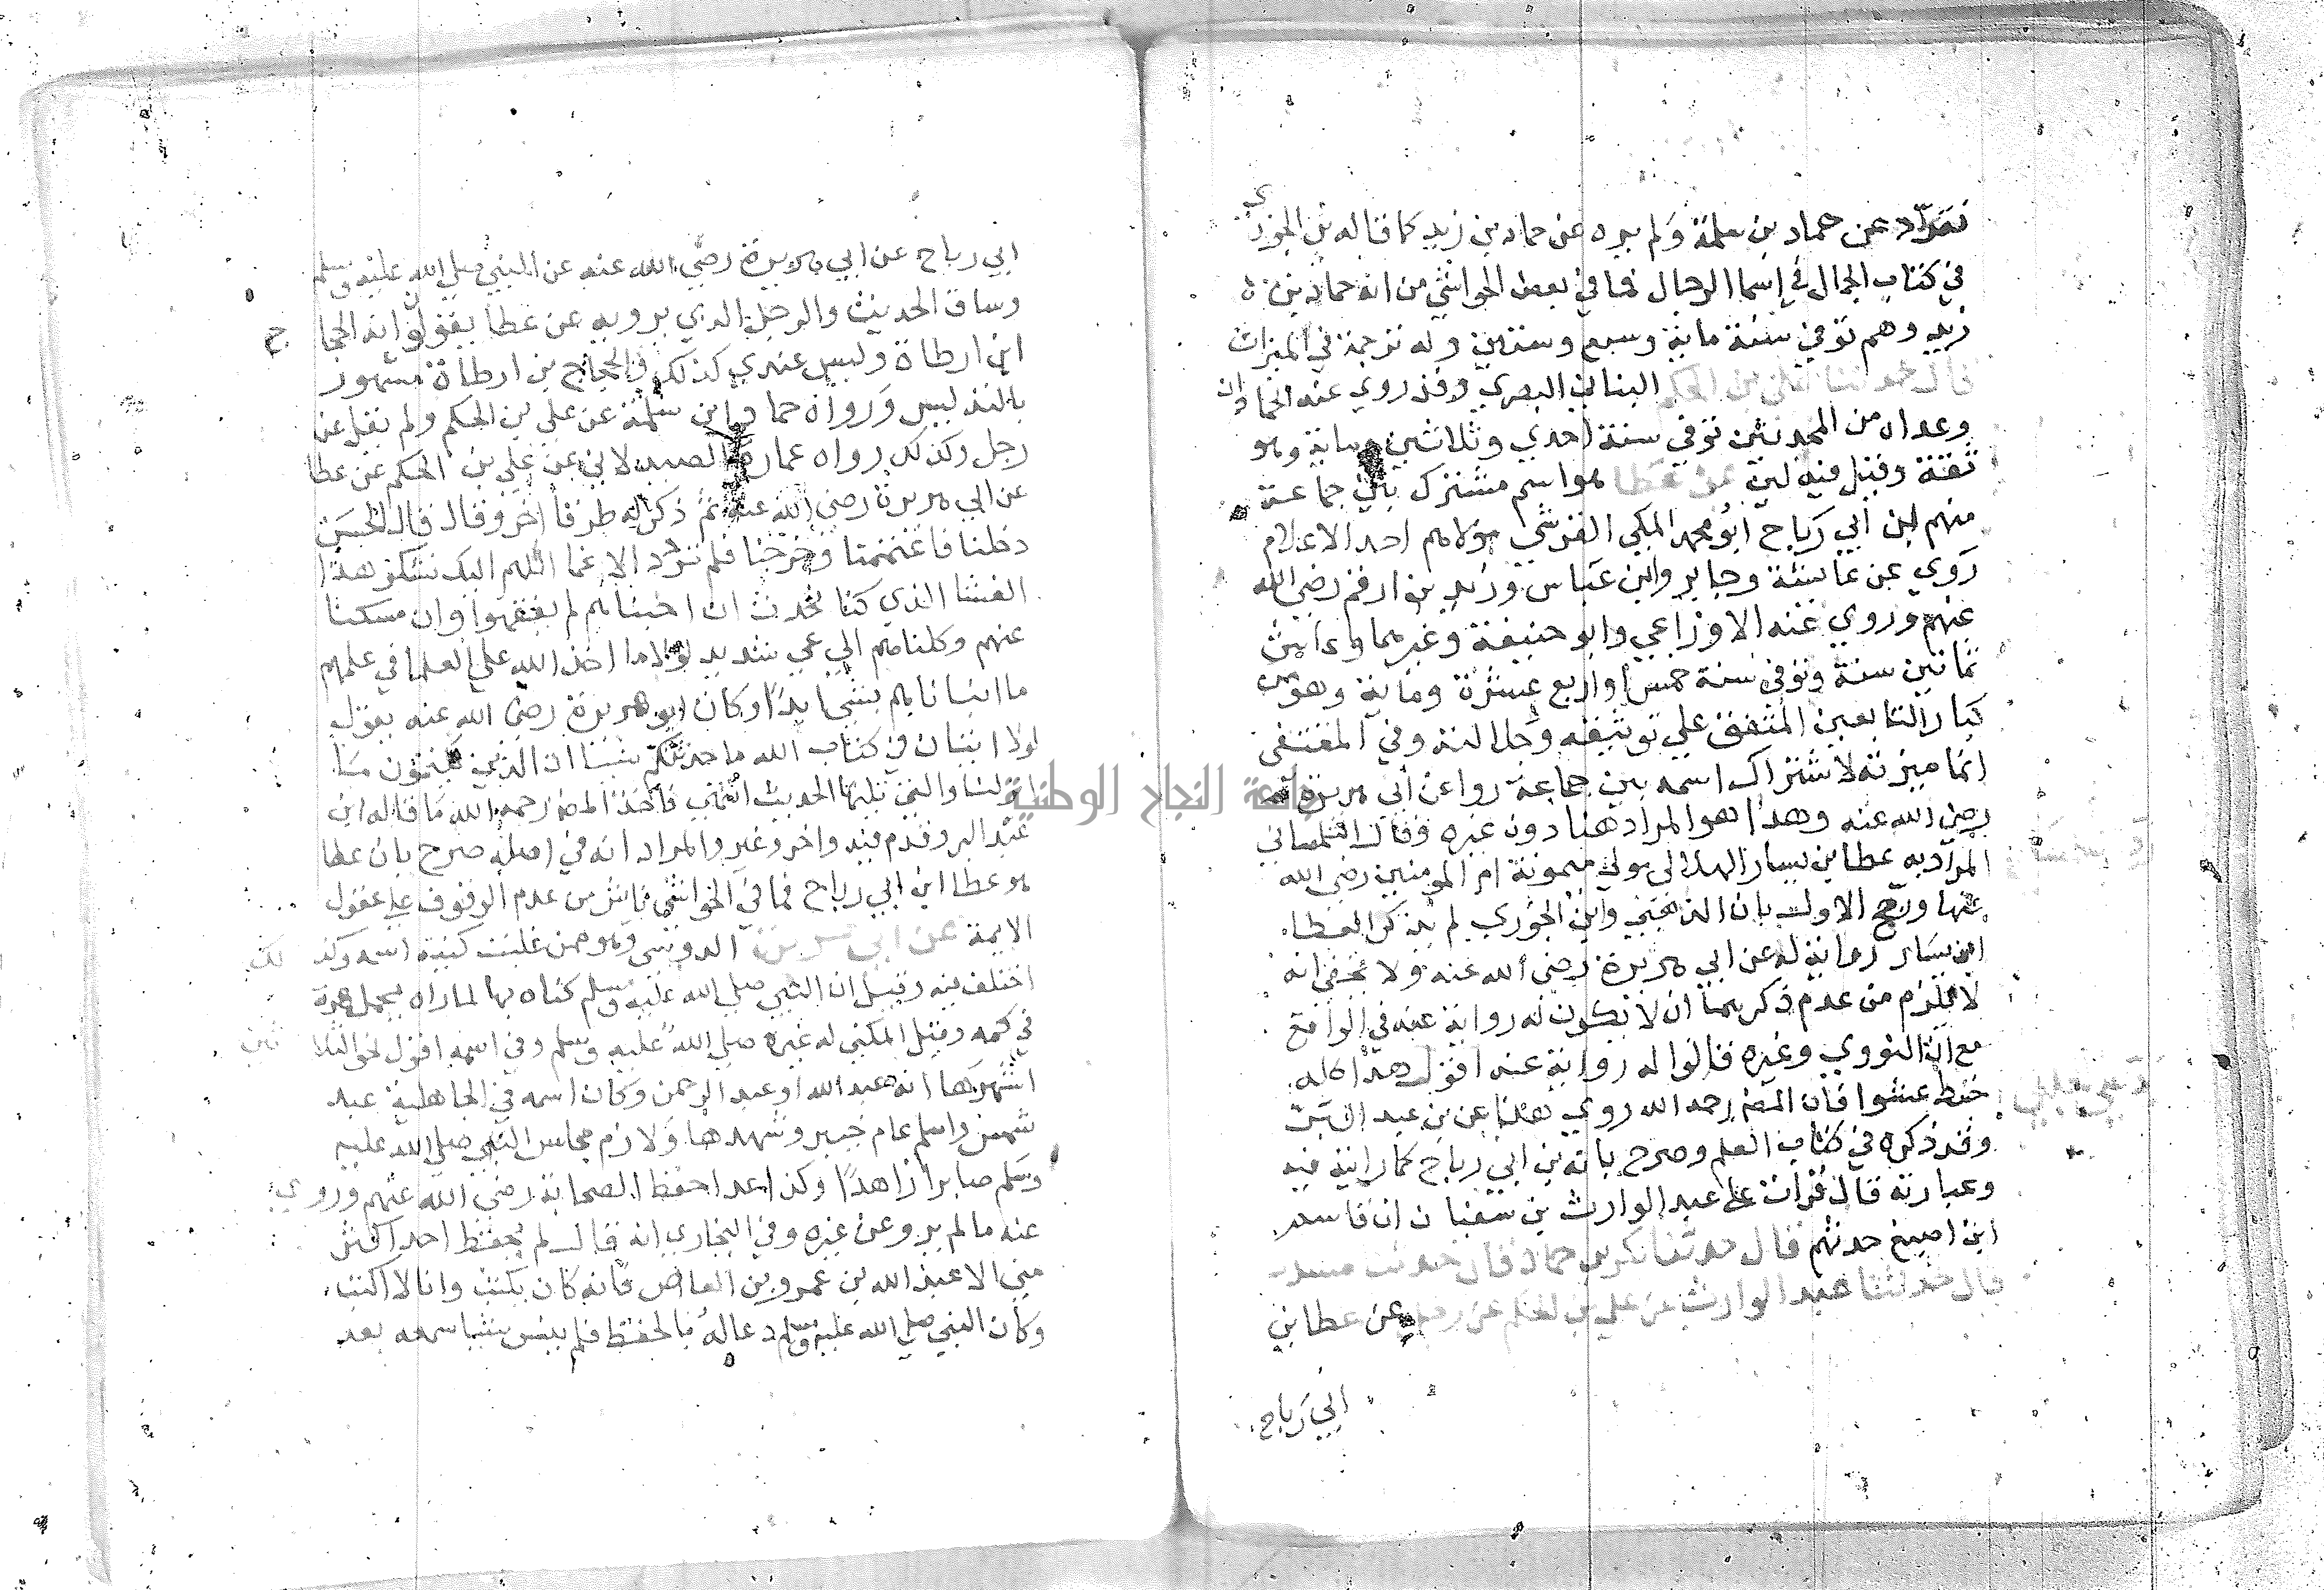 تفرّد عن حماد بن سلمة ولم يروه عن حماد بن زيد كما قاله بن الجوزي
في كتاب الجمال في إسما الرجال فما في بعض الحواشي من انه حماد بن
زيد وهم توفي سنة ماية وسبع وستين وله ترجمة في الميزان
قال حدثنا علي بن الحكم البناني البصري وقد روي عنه الحمادان
وعداه من المحدثين توفي سنة احدي وثلاثين وماية وهو
ثقة وقيل فيه لين عن عطا هو اسم مشترك بين جماعة
منهم ابن أبي رَباح ابو محمد المكي القرشي مولاهم احد الاعلام
رَوي عن عايشة وجابر وابن عَباس وزيد بن ارقم رضي الله
عنهم وروي عنه الاوزاعي وابو حنيفة وغيرهما وعاش
ثمانين سنة وتوفي سنة خمس او اربع عشرة وماية وهو من
كبار التابعين المتفق علي توثيقه وجلالته وفي المقتفى
انما ميزته لاشتراك اسمه بين جماعة رووا عن أبي هريرة
رضي الله عنه وهذا هو المراد هنا دون غيره وقال التلمساني
المراد به عطا بن يسار الهلالى مولي ميمونة ام المومنين رضي الله
عنها ورجح الاول بان الذهبي وابن الجوزي لم يذكرا لعطا
ابن يسَار رواية له عن ابي هريرة رضي الله عنه ولا يخفى انه
لا يلزم من عدم ذكرهما ان لا تكون له رواية عنه في الواقع
مع ان النووي وغيره قالوا له رواية عنه اقول هذا كله
خبط عشوا فان المص رحمه الله روي هذا عن بن عبد البر
وقد ذكره في كتاب العلم وصرح بانه بن ابي رباح كما رايته فيه
وعبارته قال قرات على عبد الوارث بن سفيان ان قاسم
ابن اصبغ حدثهم قال حدثنا بكر بن حماد قال حدثنا مسدد
قال حدثنا عبد الوارث عن علي بن الحكم عن رجل عن عطا بن
أبي رَباح
ابي رباح عن ابي هريرة رضي الله عنه عن النبي صلي الله عليه وسلم
وساق الحديث والرجل الذي يرويه عن عطا يقولون انه الحجاج
ابن ارطاة وليس عندي كذلك والحجاج بن ارطاة مشهور
بالتدليس وَرواه حماد ابن سلمة عن علي بن الحكم ولم يقل عن
رجل وكذلك رواه عمارة الصيدلاني عن علي بن الحكم عن عطا
عن ابي هريرة رضي الله عنه ثم ذكر له طرقا اخر وقال قال الحسن
دخلنا فاغتممنا وخرجنا فلم نزدد الا غما اللهم اليك نشكو هذا
الغثا الذي كنا نحدث ان اجبناهم لم يفقهوا وان سكتنا
عنهم وكلناهم الي عي شديد لولا ما اخذ الله على العلما في علمهم
ما انباناهم بشي ابدًا وكان ابو هريرة رضي الله عنه يقول
لولا ايتان في كتاب الله ما حدثتكم بشيئا ان الذين يكتمون مَا
انزلنا والتي تليها الحديث انتهي فاخذ المص رحمه الله ما قاله ابن
عبد البر وقدم فيه واخر وغير والمراد انه في اصله صرح بان عطا
هو عطا ابن ابي رباح فما في الحواشي ناش من عدم الوقوف علي عقول
الايمة عن ابي هريرة الدوسي وهو ممن غلبت كنيته اسمه وكذلك
اختلف فيه وقيل ان النبي صلي الله عليه وسلم كناه بها لما راه يحمل هرة
في كمه وقيل المكني له غيره صلي الله عليه وسلم وفي اسمه اقوال نحو الثلاثين
اشهرها انه عبد الله او عبد الرحمن وكان اسمه في الجاهلية عبد
شمس واسلم عام خيبر وشهدها ولازم مجالس النبي صلي الله عليه
وسلم صابرا زاهدًا وكذا عد احفظ الصحابة رضي الله عنهم وروي
عنه ما لم يرو عن غيره وفي البخاري انه قال لم يحفظ احد اكثر
مني الا عبد الله بن عمرو بن العاص فانه كان يكتب وانا لا اكتب
وكان النبي صلي الله عليه وسلم دعا له بالحفظ فلم ينس شيا سمعه بعد
جامعة النجاح الوطنية